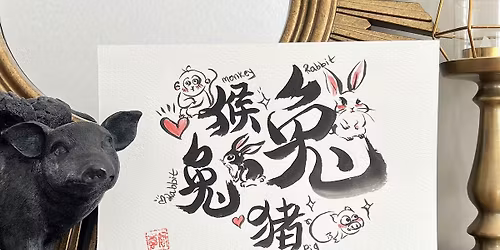 monkey
Rabbit
猴
兔
兔
Rabbit
猪
Pig